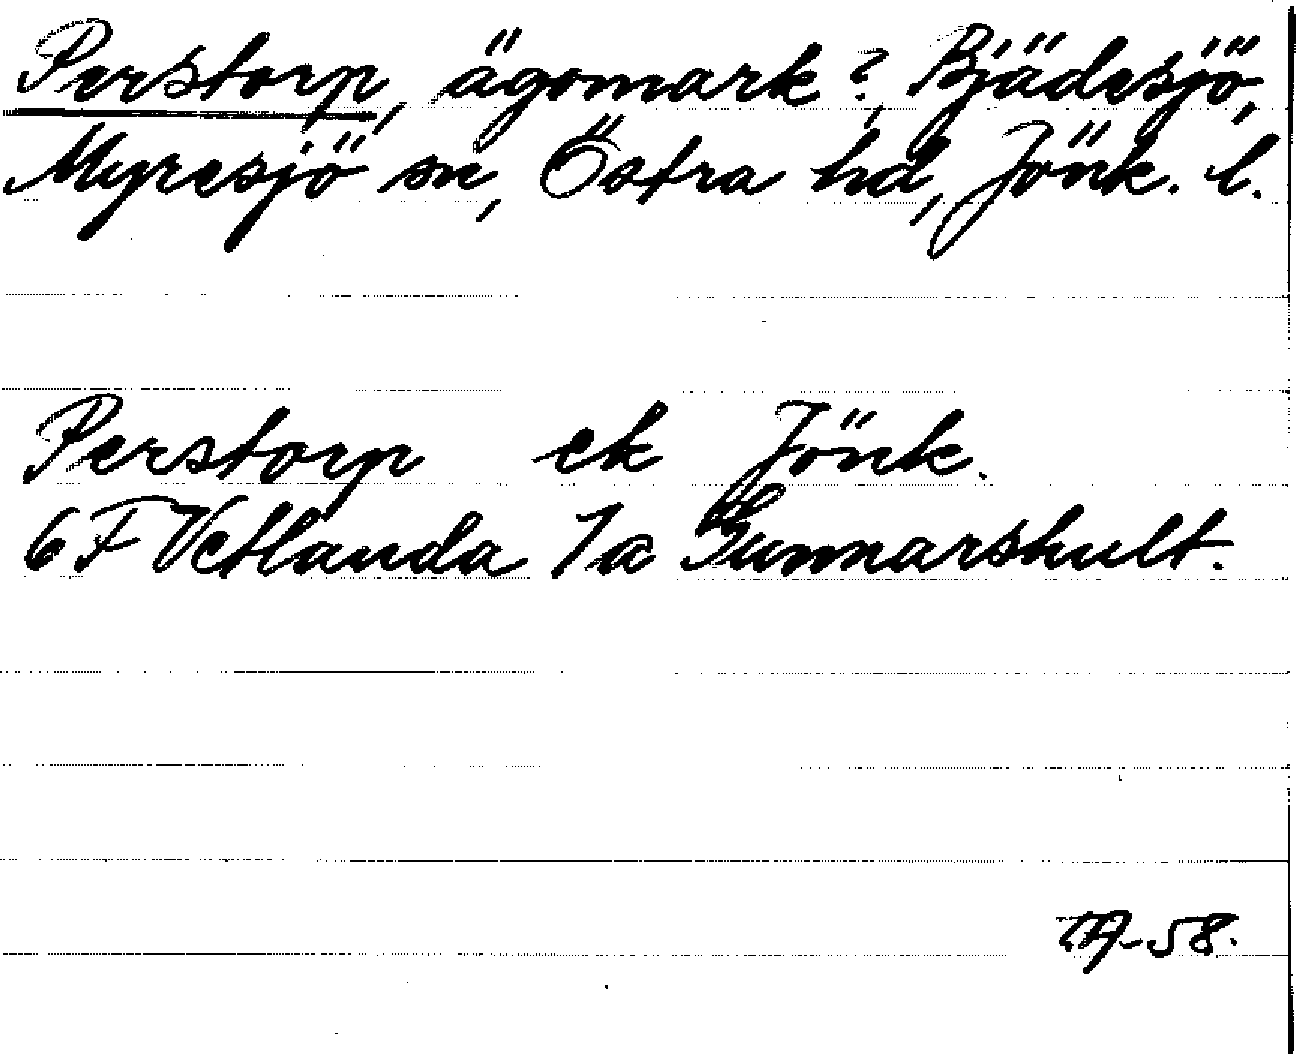 Perstorp, ägomark?, Bjädesjö,
Myresjö sn, Östra hd, Jönk. l.
Perstorp ek Jönk.
6F Vetlanda 7a Gunnarshult.
-58.